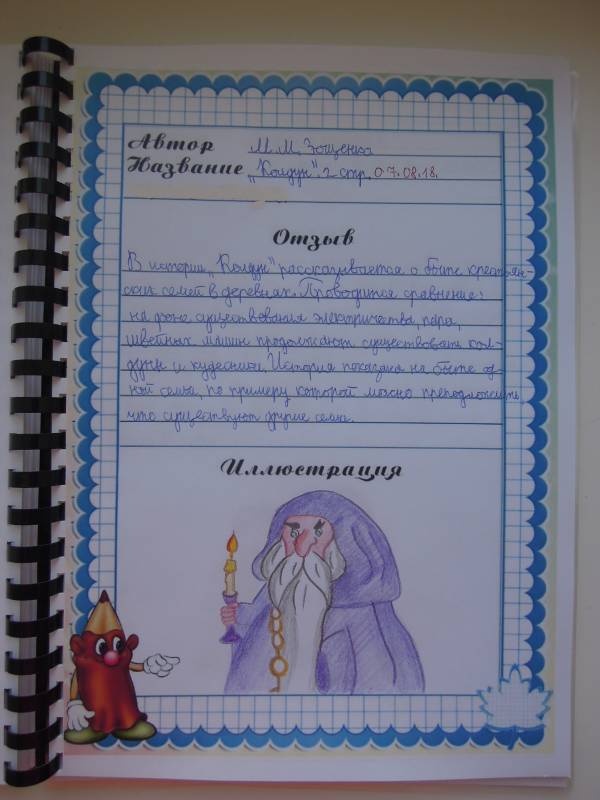 Автор М.М. Зощенко
Название "Колдун". 2 стр. 07.08.18.
Отзыв
В истории "Колдун" рассказывается о быте крестьян-
ских семей в деревнях. Проводится сравнение:
на фоне существования электричества, пара,
швейных машин продолжают существовать кол-
дуны и кудесники. История показана на быте од-
ной семьи, по примеру которой можно предположить,
что существуют другие семьи.
Иллюстрация